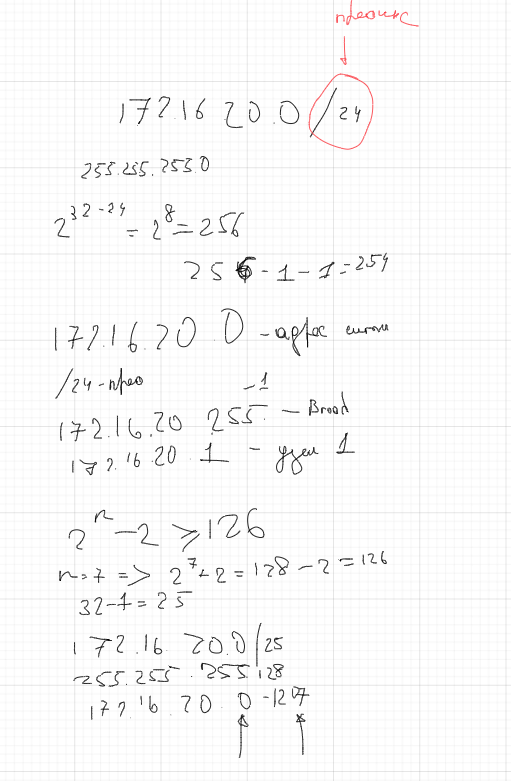 префикс
172.16 20.0 /24
255.255.255.0
2^32-24 = 2^8 = 256
256 - 1 - 1 = 254
172.16.20 0 - адрес
/24 - преф
-1
172.16.20 255 - Broad
172.16.20 1 - узел 1
2^n - 2 ≥ 126
n=7 => 2^7+2 = 128 - 2 = 126
32-7=25
172.16. 20.0/25
255.255.255.128
172.16.20.0 -127